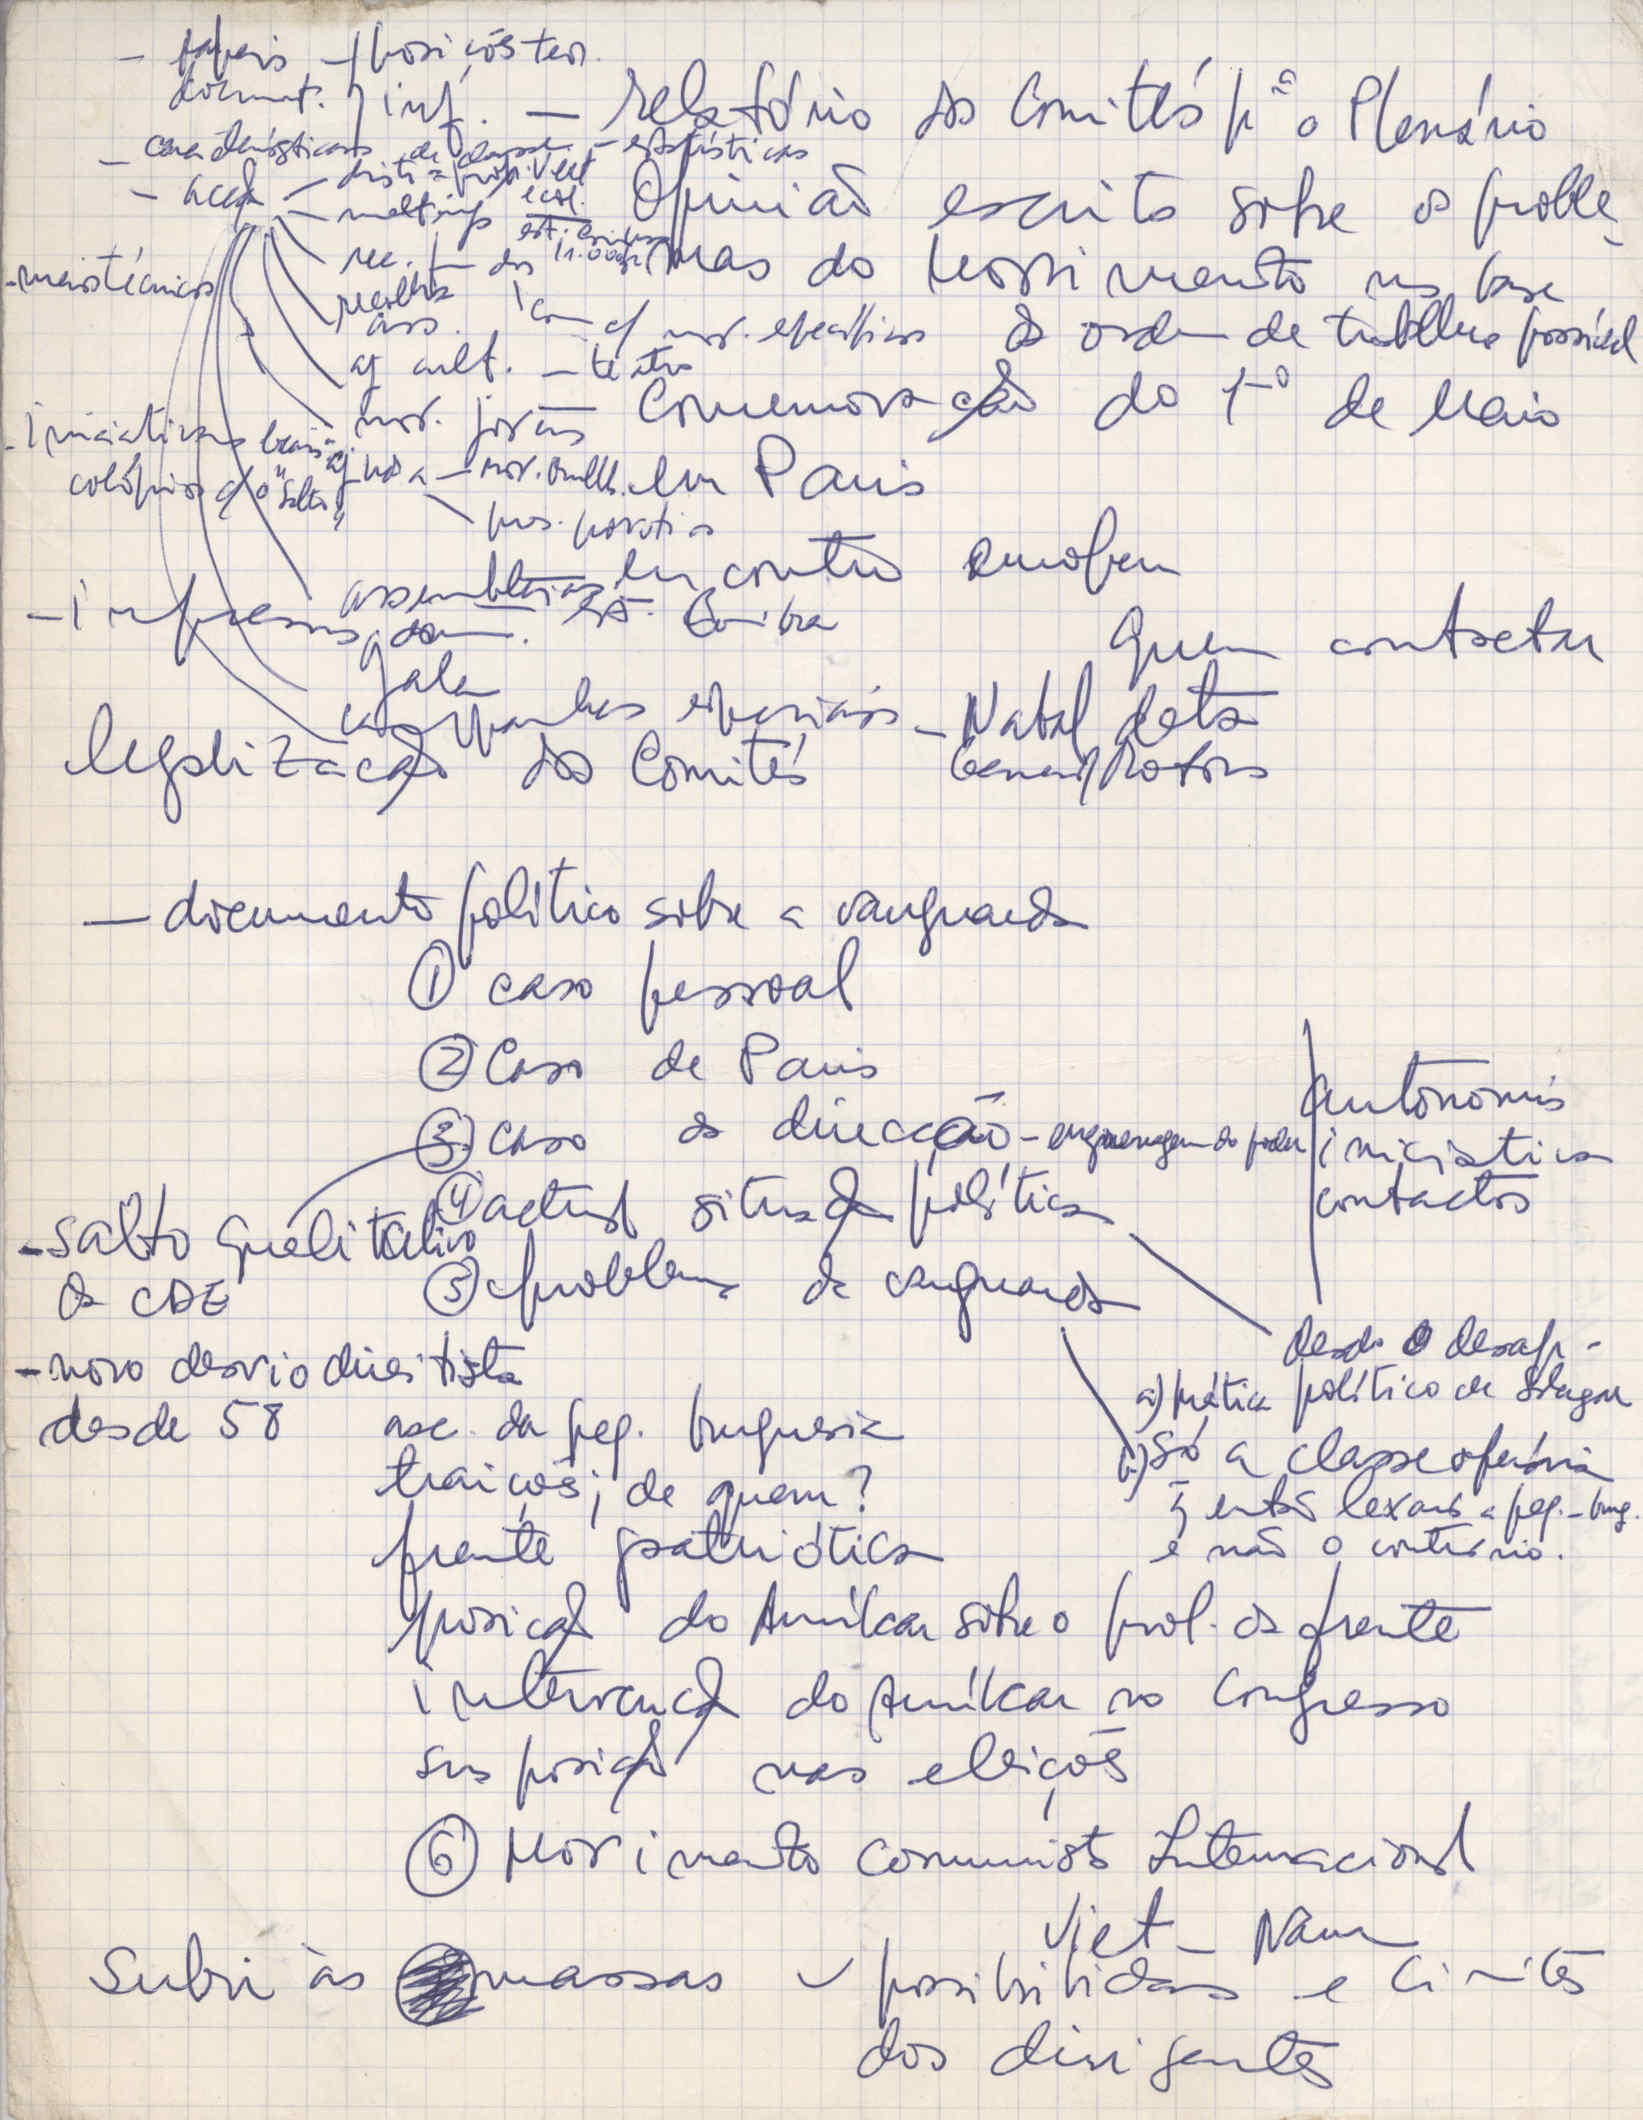 - papeis posições teo.
document. inf. - relatório dos Comités pª o Plenário
- características de classe - estatísticas
- acção -
- meetings
Opinião escrita sobre os proble-
mas do Movimento na base
- meios técnicos
recolha
da ordem de trabalhos possível
ass.
aj cult. - teatro
Comemoração do 1º de Maio
mov. jovens
em Paris
- Iniciativas
colóquios "Salto"
- mov. mulh.
Encontro europeu
assembleias
- Imprensa
Quem contactar
gala
campanhas especiais - Natal
General Motors
legalização dos Comités
- documento político sobre a vanguarda
① caso pessoal
② Caso de Paris
③ Caso da direcção - engrenagem do poder
autonomia
iniciativa
contactos
④ actual situação política
- salto qualitativo
da CDE
⑤ problema da vanguarda
- novo desvio direitista
desde 58
desde o desap-
a) prática político de Salazar
b) só a classe operária
e não o contrário.
asc. da peq. burguesia
traições; de quem?
frente patriótica
posição do Amílcar sobre o prol. da frente
intervenção do Amílcar no Congresso
sua posição nas eleições
⑥ Movimento Comunista Internacional
Viet-Nam
Subir às massas
possibilidades e limites
dos dirigentes